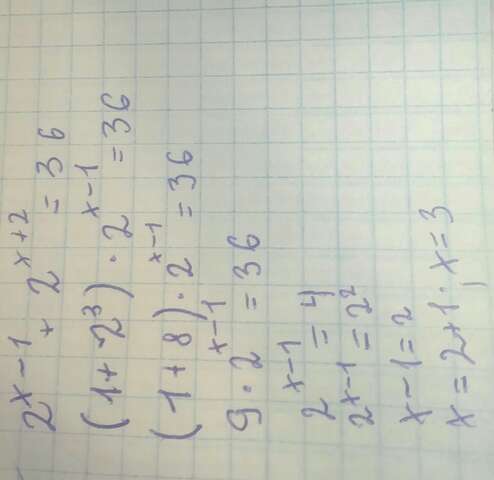 2^(x-1) + 2^(x+2) = 36
(1+2^3) · 2^(x-1) = 36
(1+8) · 2^(x-1) = 36
9 · 2^(x-1) = 36
2^(x-1) = 4
2^(x-1) = 2^2
x-1=2
x=2+1; x=3